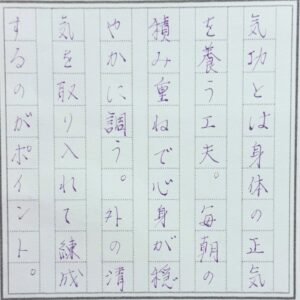 気功とは身体の正気
を養う工夫。毎朝の
積み重ねで心身が穏
やかに調う。外の清
気を取り入れて練成
するのがポイント。